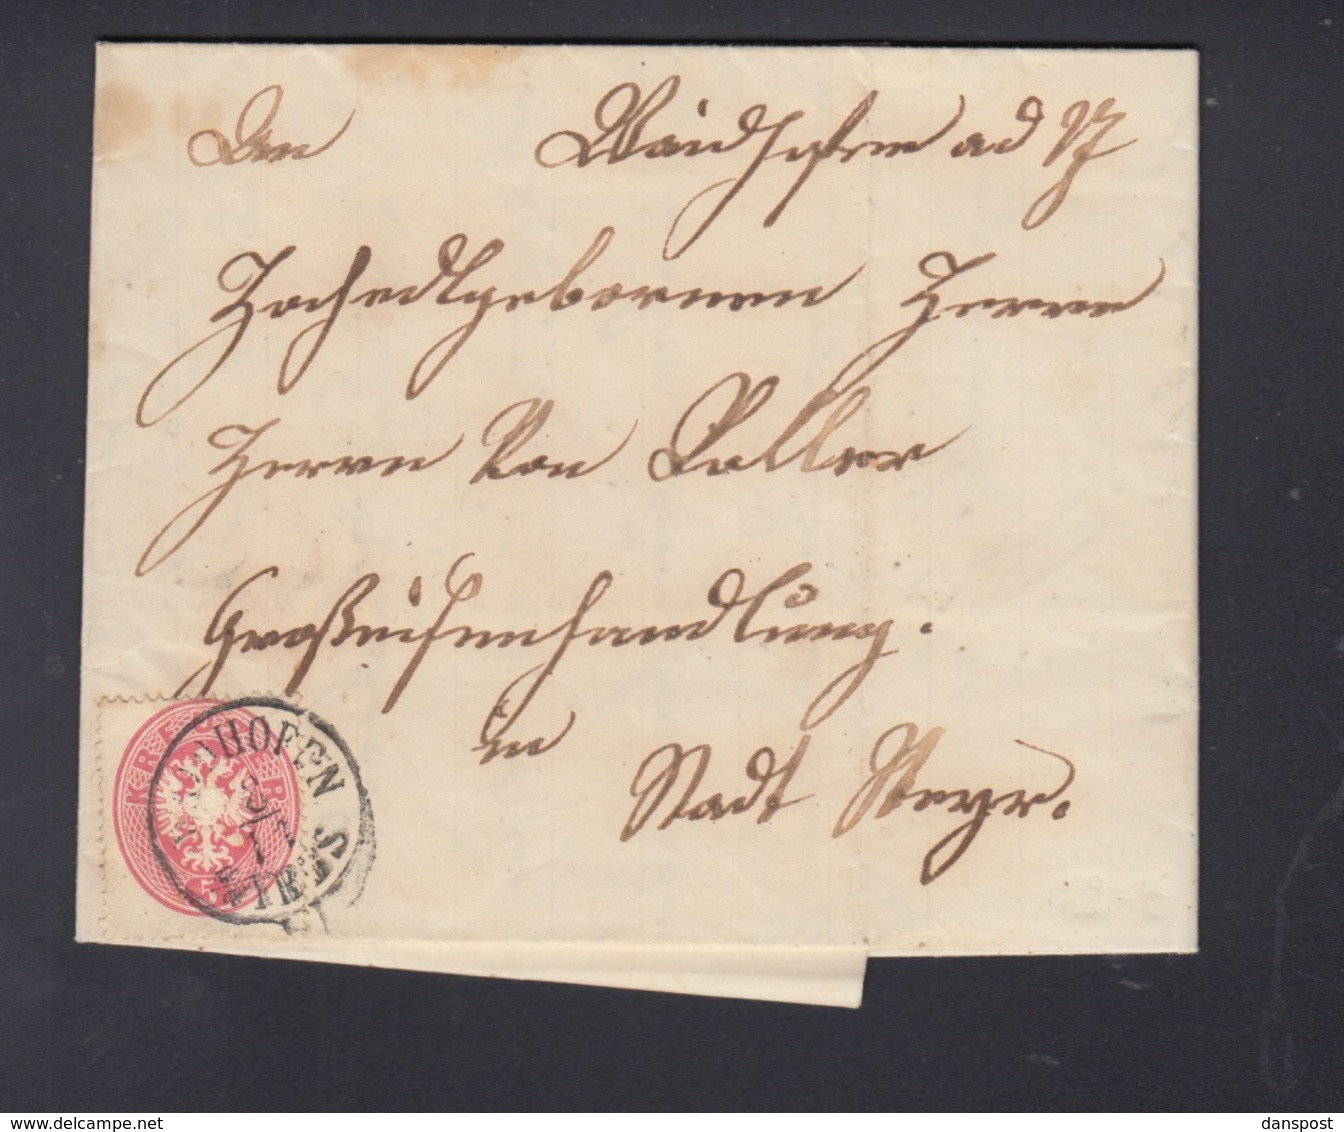 An Waidhofen ad Y
Hochedlgebornen Herrn
Herrn von Koller
Großeisenhandlung.
in
Stadt Steyr.
KREUZER
5
HOFEN
YBBS
delcampe.net
danspost